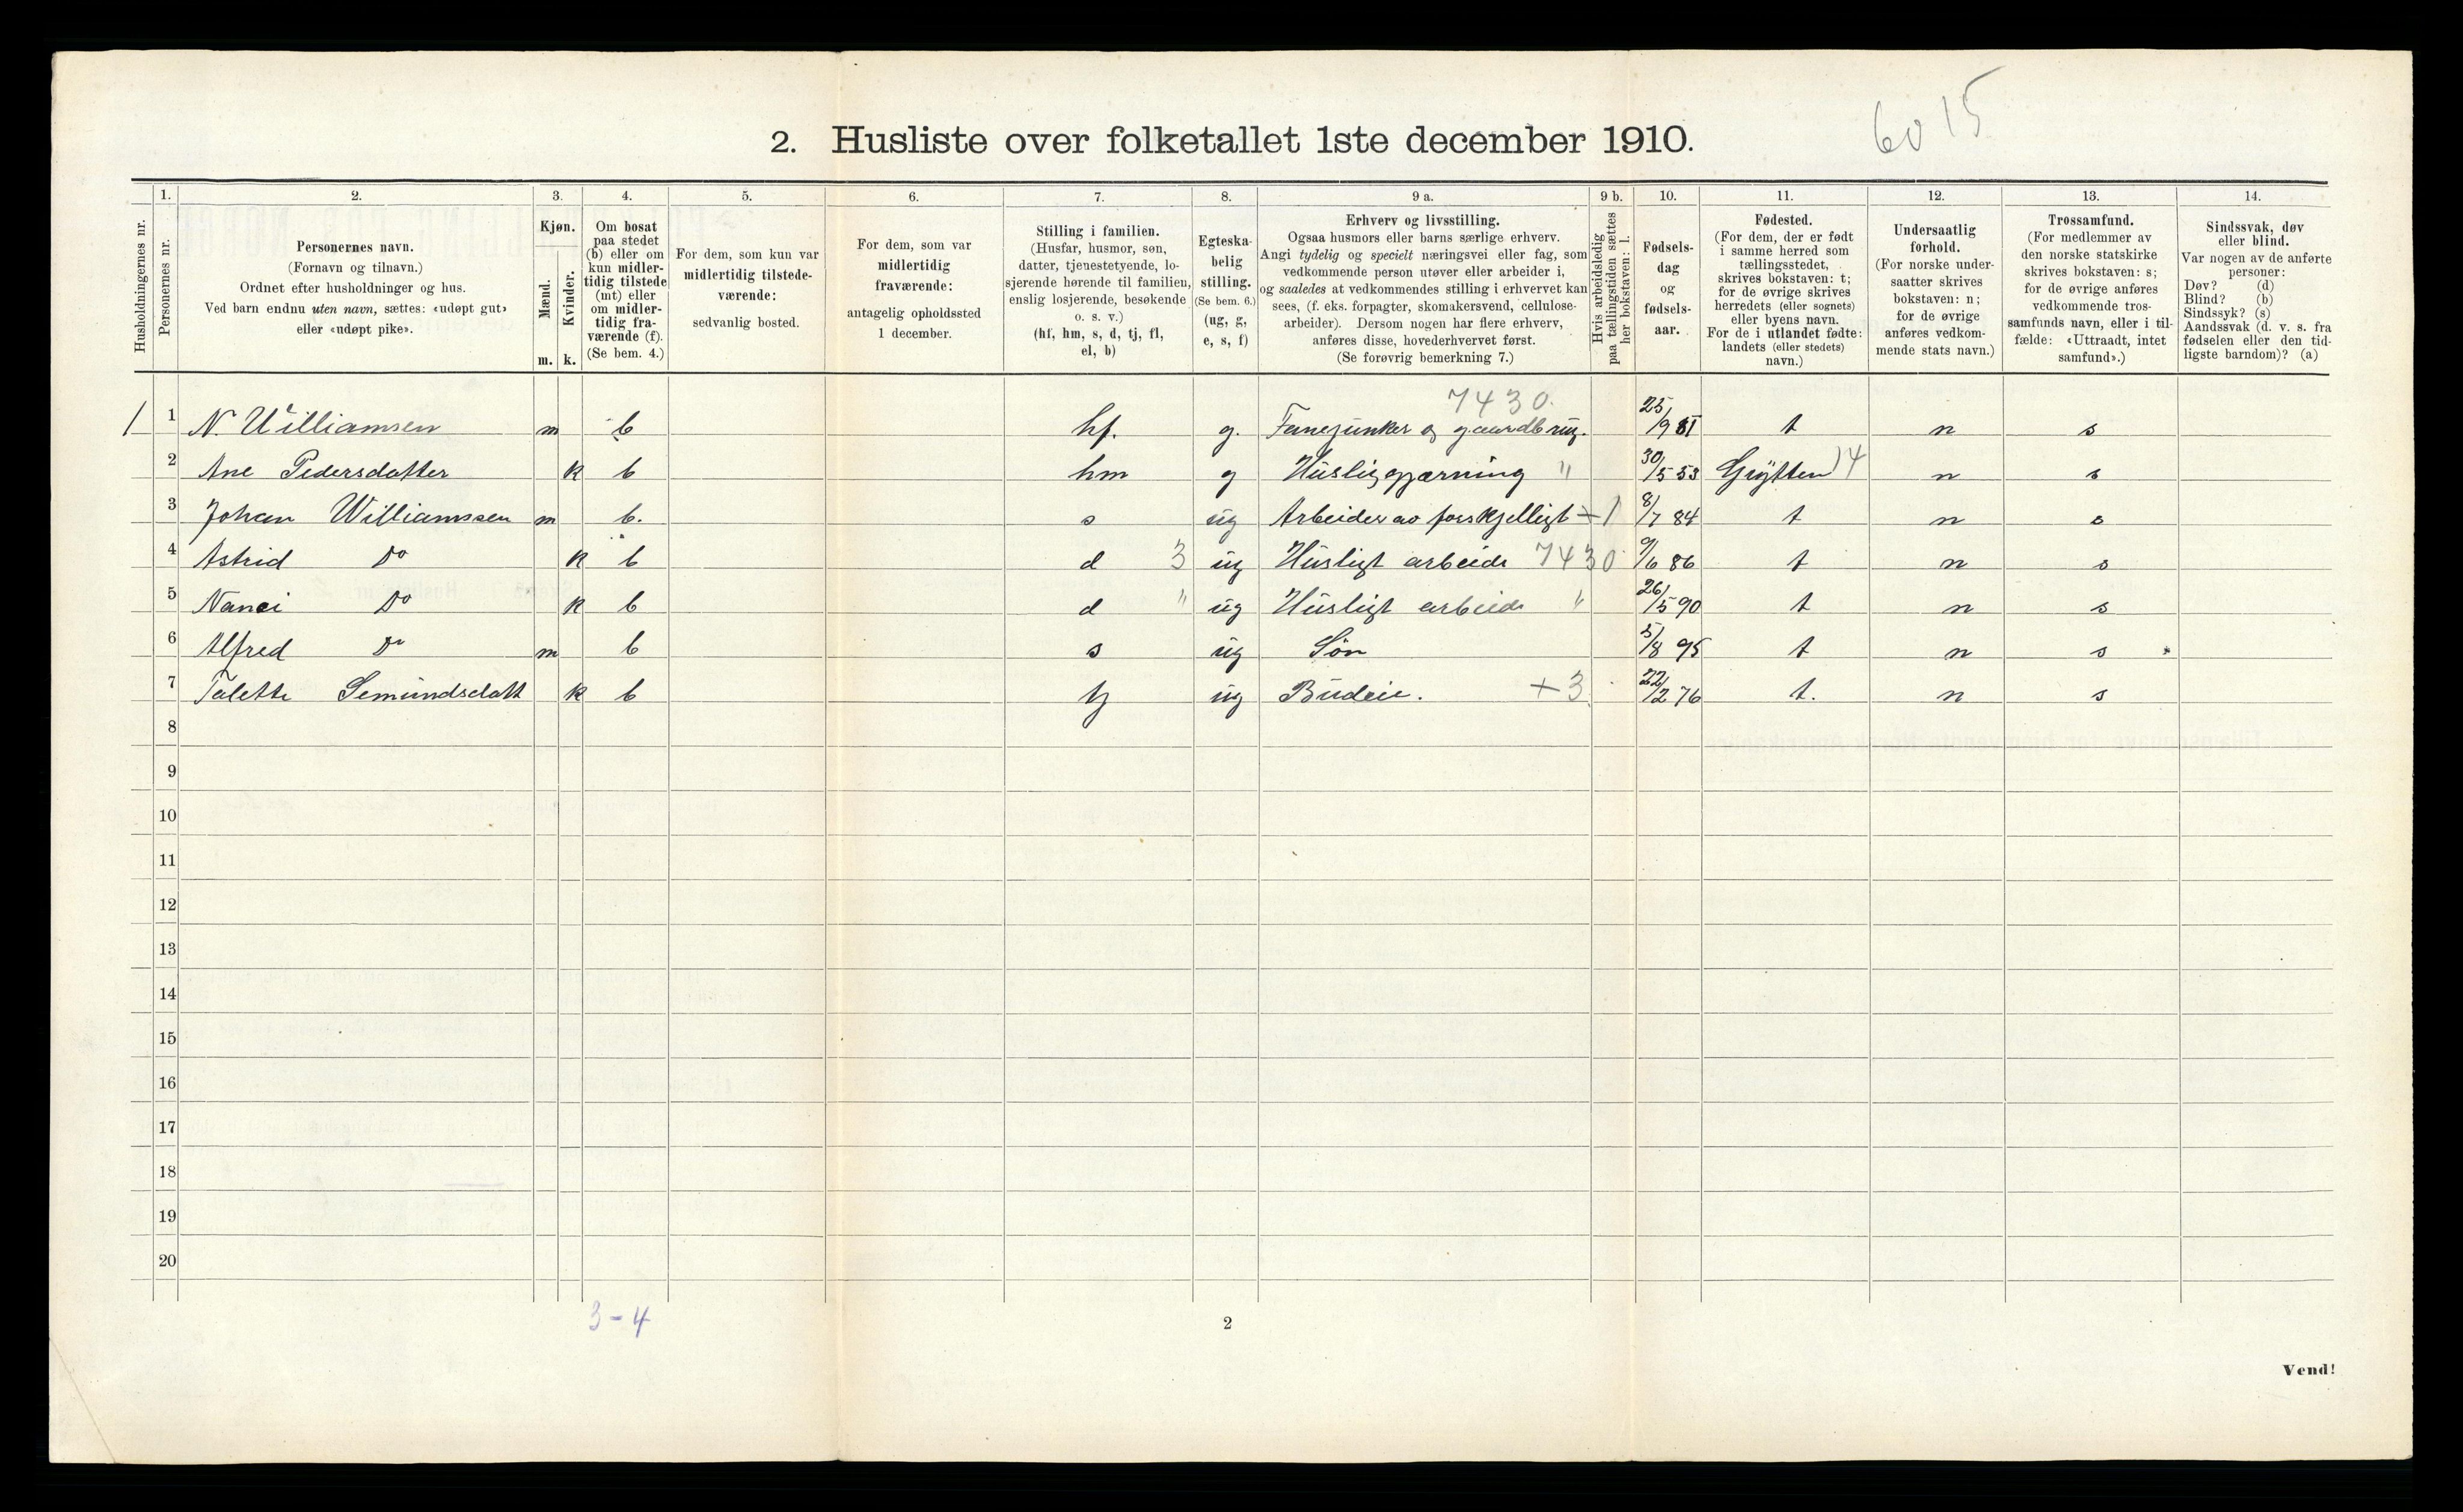 6015
2. Husliste over folketallet 1ste december 1910.
Husholdningernes nr.
1.
Personernes nr.
2.
Personernes navn.
(Fornavn og tilnavn.)
Ordnet efter husholdninger og hus.
Ved barn endnu uten navn, sættes: «udøpt gut»
eller «udøpt pike».
3.
Kjøn.
Mænd.
Kvinder.
m. k.
4.
Om bosat
paa stedet
(b) eller om
kun midler-
tidig tilstede
(mt) eller
om midler-
tidig fra-
værende (f).
(Se bem. 4.)
5.
For dem, som kun var
midlertidig tilstede-
værende:
sedvanlig bosted.
6.
For dem, som var
midlertidig
fraværende:
antagelig opholdssted
1 december.
7.
Stilling i familien.
(Husfar, husmor, søn,
datter, tjenestetyende, lo-
sjerende hørende til familien,
enslig losjerende, besøkende
o. s. v.)
(hf, hm, s, d, tj, fl,
el, b)
8.
Egteska-
belig
stilling.
(Se bem. 6.)
(ug, g,
e, s, f)
9 a.
Erhverv og livsstilling.
Ogsaa husmors eller barns særlige erhverv.
Angi tydelig og specielt næringsvei eller fag, som
vedkommende person utøver eller arbeider i,
og saaledes at vedkommendes stilling i erhvervet kan
sees, (f. eks. forpagter, skomakersvend, cellulose-
arbeider). Dersom nogen har flere erhverv,
anføres disse, hovederhvervet først.
(Se forøvrig bemerkning 7.)
9 b.
Hvis arbeidsledig
paa tællingstiden sættes
her bokstaven: l.
10.
Fødsels-
dag
og
fødsels-
aar.
11.
Fødested.
(For dem, der er født
i samme herred som
tællingsstedet,
skrives bokstaven: t;
for de øvrige skrives
herredets (eller sognets)
eller byens navn.
For de i utlandet fødte:
landets (eller stedets)
navn.)
12.
Undersaatlig
forhold.
(For norske under-
saatter skrives
bokstaven: n;
for de øvrige
anføres vedkom-
mende stats navn.)
13.
Trossamfund.
(For medlemmer av
den norske statskirke
skrives bokstaven: s;
for de øvrige anføres
vedkommende tros-
samfunds navn, eller i til-
fælde: «Uttraadt, intet
samfund».)
14.
Sindssvak, døv
eller blind.
Var nogen av de anførte
personer:
Døv? (d)
Blind? (b)
Sindssyk? (s)
Aandssvak (d. v. s. fra
fødselen eller den tid-
ligste barndom)? (a)
7430.
1 1 N. Williamsen m b hf. g. Fanejunker og gaardbrug. 25/9 51 t n s
2 Ane Pedersdatter k b hm g Huslig gjærning " 30/5 53 Grytten 4 n s
3 Johan Williamssen m b. s ug Arbeider av forskjelligt +1 8/7 84 t n s
4 Astrid Do k b d 3 ug Husligt arbeide 7430 9/6 86 t n s
5 Nanci Do k b d " ug Husligt arbeide " 26/5 90 t n s
6 Alfred Do m b s ug Søn 5/8 95 t n s
7 Talette Semundsdatt k b tj ug Budeie. +3 22/2 76 t. n s
8
9
10
11
12
13
14
15
16
17
18
19
20
3-4
2
Vend!